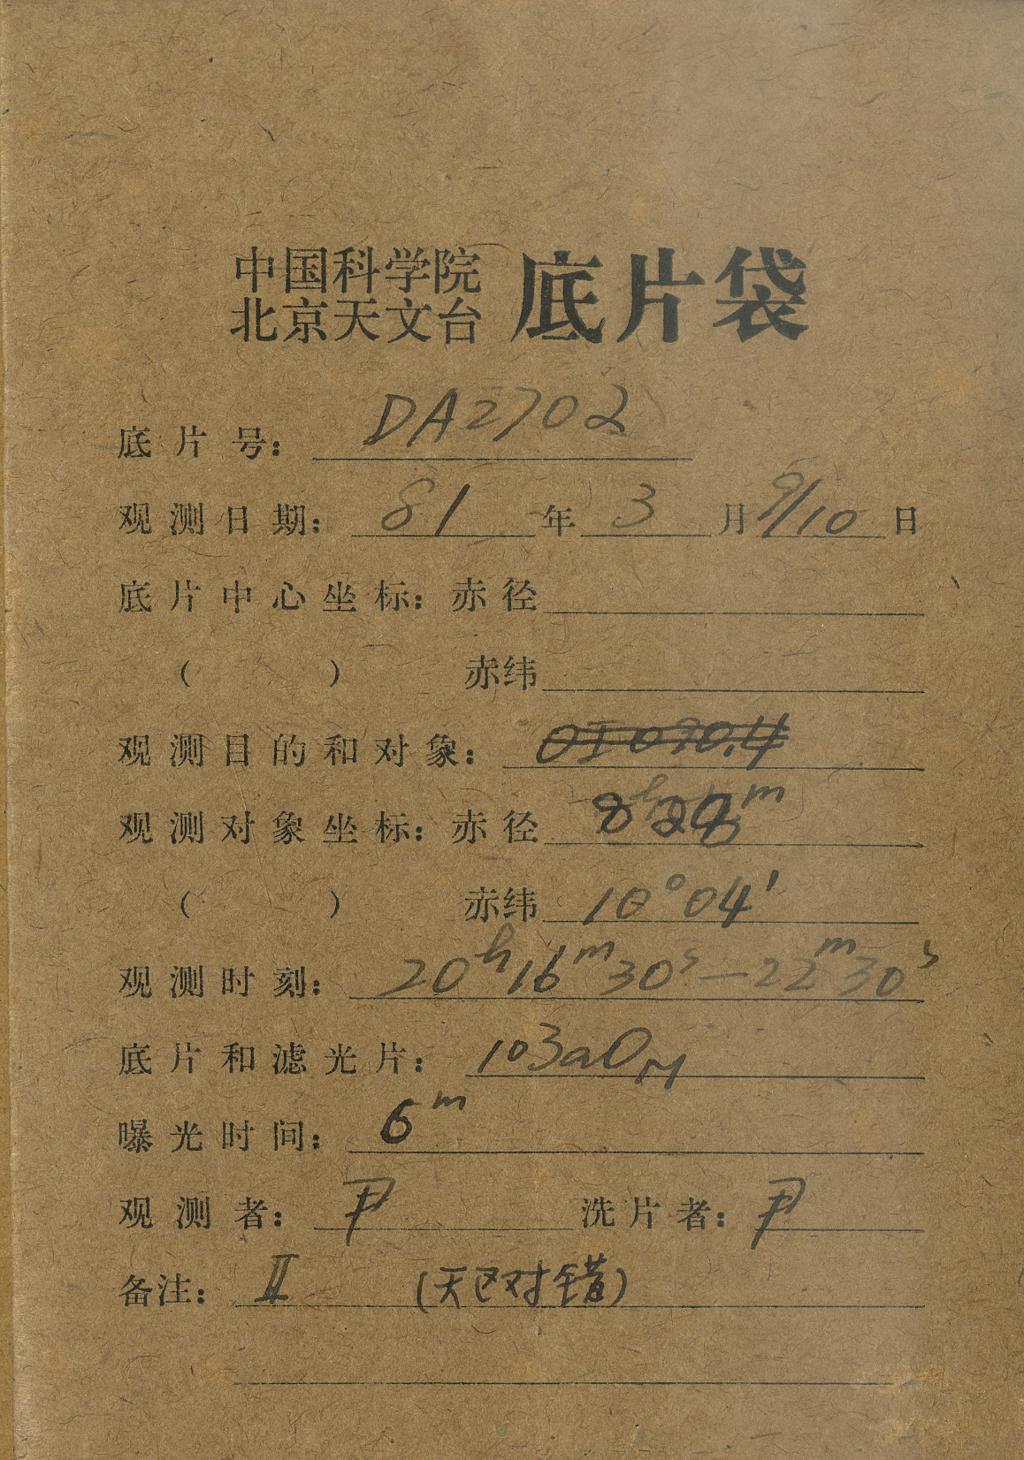 中国科学院
北京天文台 底片袋
底片号: DA2702
观测日期: 81 年 3 月 9/10 日
底片中心坐标: 赤径
( ) 赤纬
观测目的和对象: OI 090.4
观测对象坐标: 赤径 8h 28m
( ) 赤纬 10°04'
观测时刻: 20h16m30s—22m30s
底片和滤光片: 103aO
曝光时间: 6m
观测者: 尹 洗片者: 尹
备注: II (天区对错)